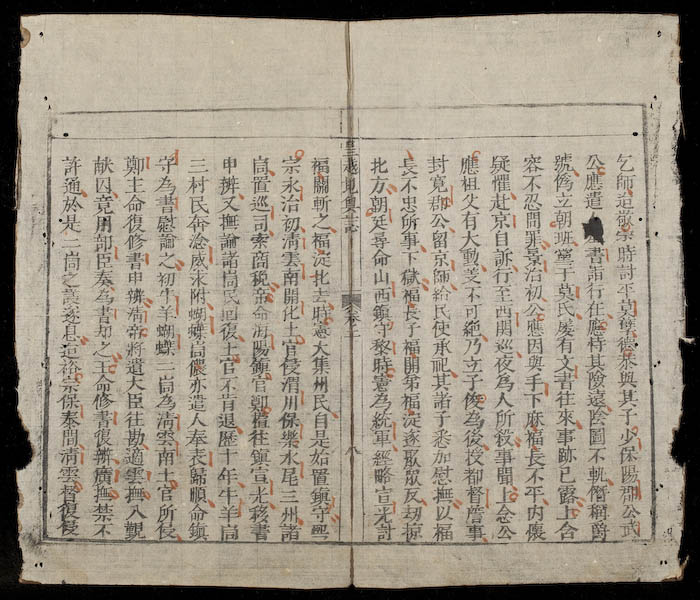 乞師追敬宗時討平莫敬德恭與其子少保陽郡公武
公應遣書詣行在應恃其險遠陰圖不軌僭稱爵
號偽立朝班黨于莫氏屢有文書往來事跡已露上含
容不忍問罪景治初公應因與手下麻福長不平內懷
疑懼赴京自訴行至西關巡夜為人所殺事聞上念公
應祖父有大勳羙不可絶乃立子俊為後授都督僉事
封寬郡公留京師給民使承祀其諸子悉加慰撫以福
長不忠所事下獄福長子福開弟福淀遂聚眾反劫掠
北方朝廷尋命山西鎮守黎時憲為統軍經略宣光討
福開斬之福淀北去時憲大集州民自是始置鎮守熙
宗永治初清雲南開化土官侵渭川保樂水尾三州諸
峝置巡司索商稅帝命海陽鎮官鄭檀往鎮宣光移書
申辨又撫諭諸峝民旧復土官不肯退歷十年牛羊峝
三村民奔淰威末附蝴蝶峝儂亦遣人奉表歸順命鎮
守為書慰諭之初牛羊蝴蝶二峝為清雲南土官所侵
鄭王命復修書申辨清帝將遣大臣往勘適雲撫入覲
献囚竟用部臣奏為書却之王命修書復辨廣撫禁不
許通於是二峝之議遂息追裕宗保泰間清雲督復侵
皇越地輿誌
卷二
八